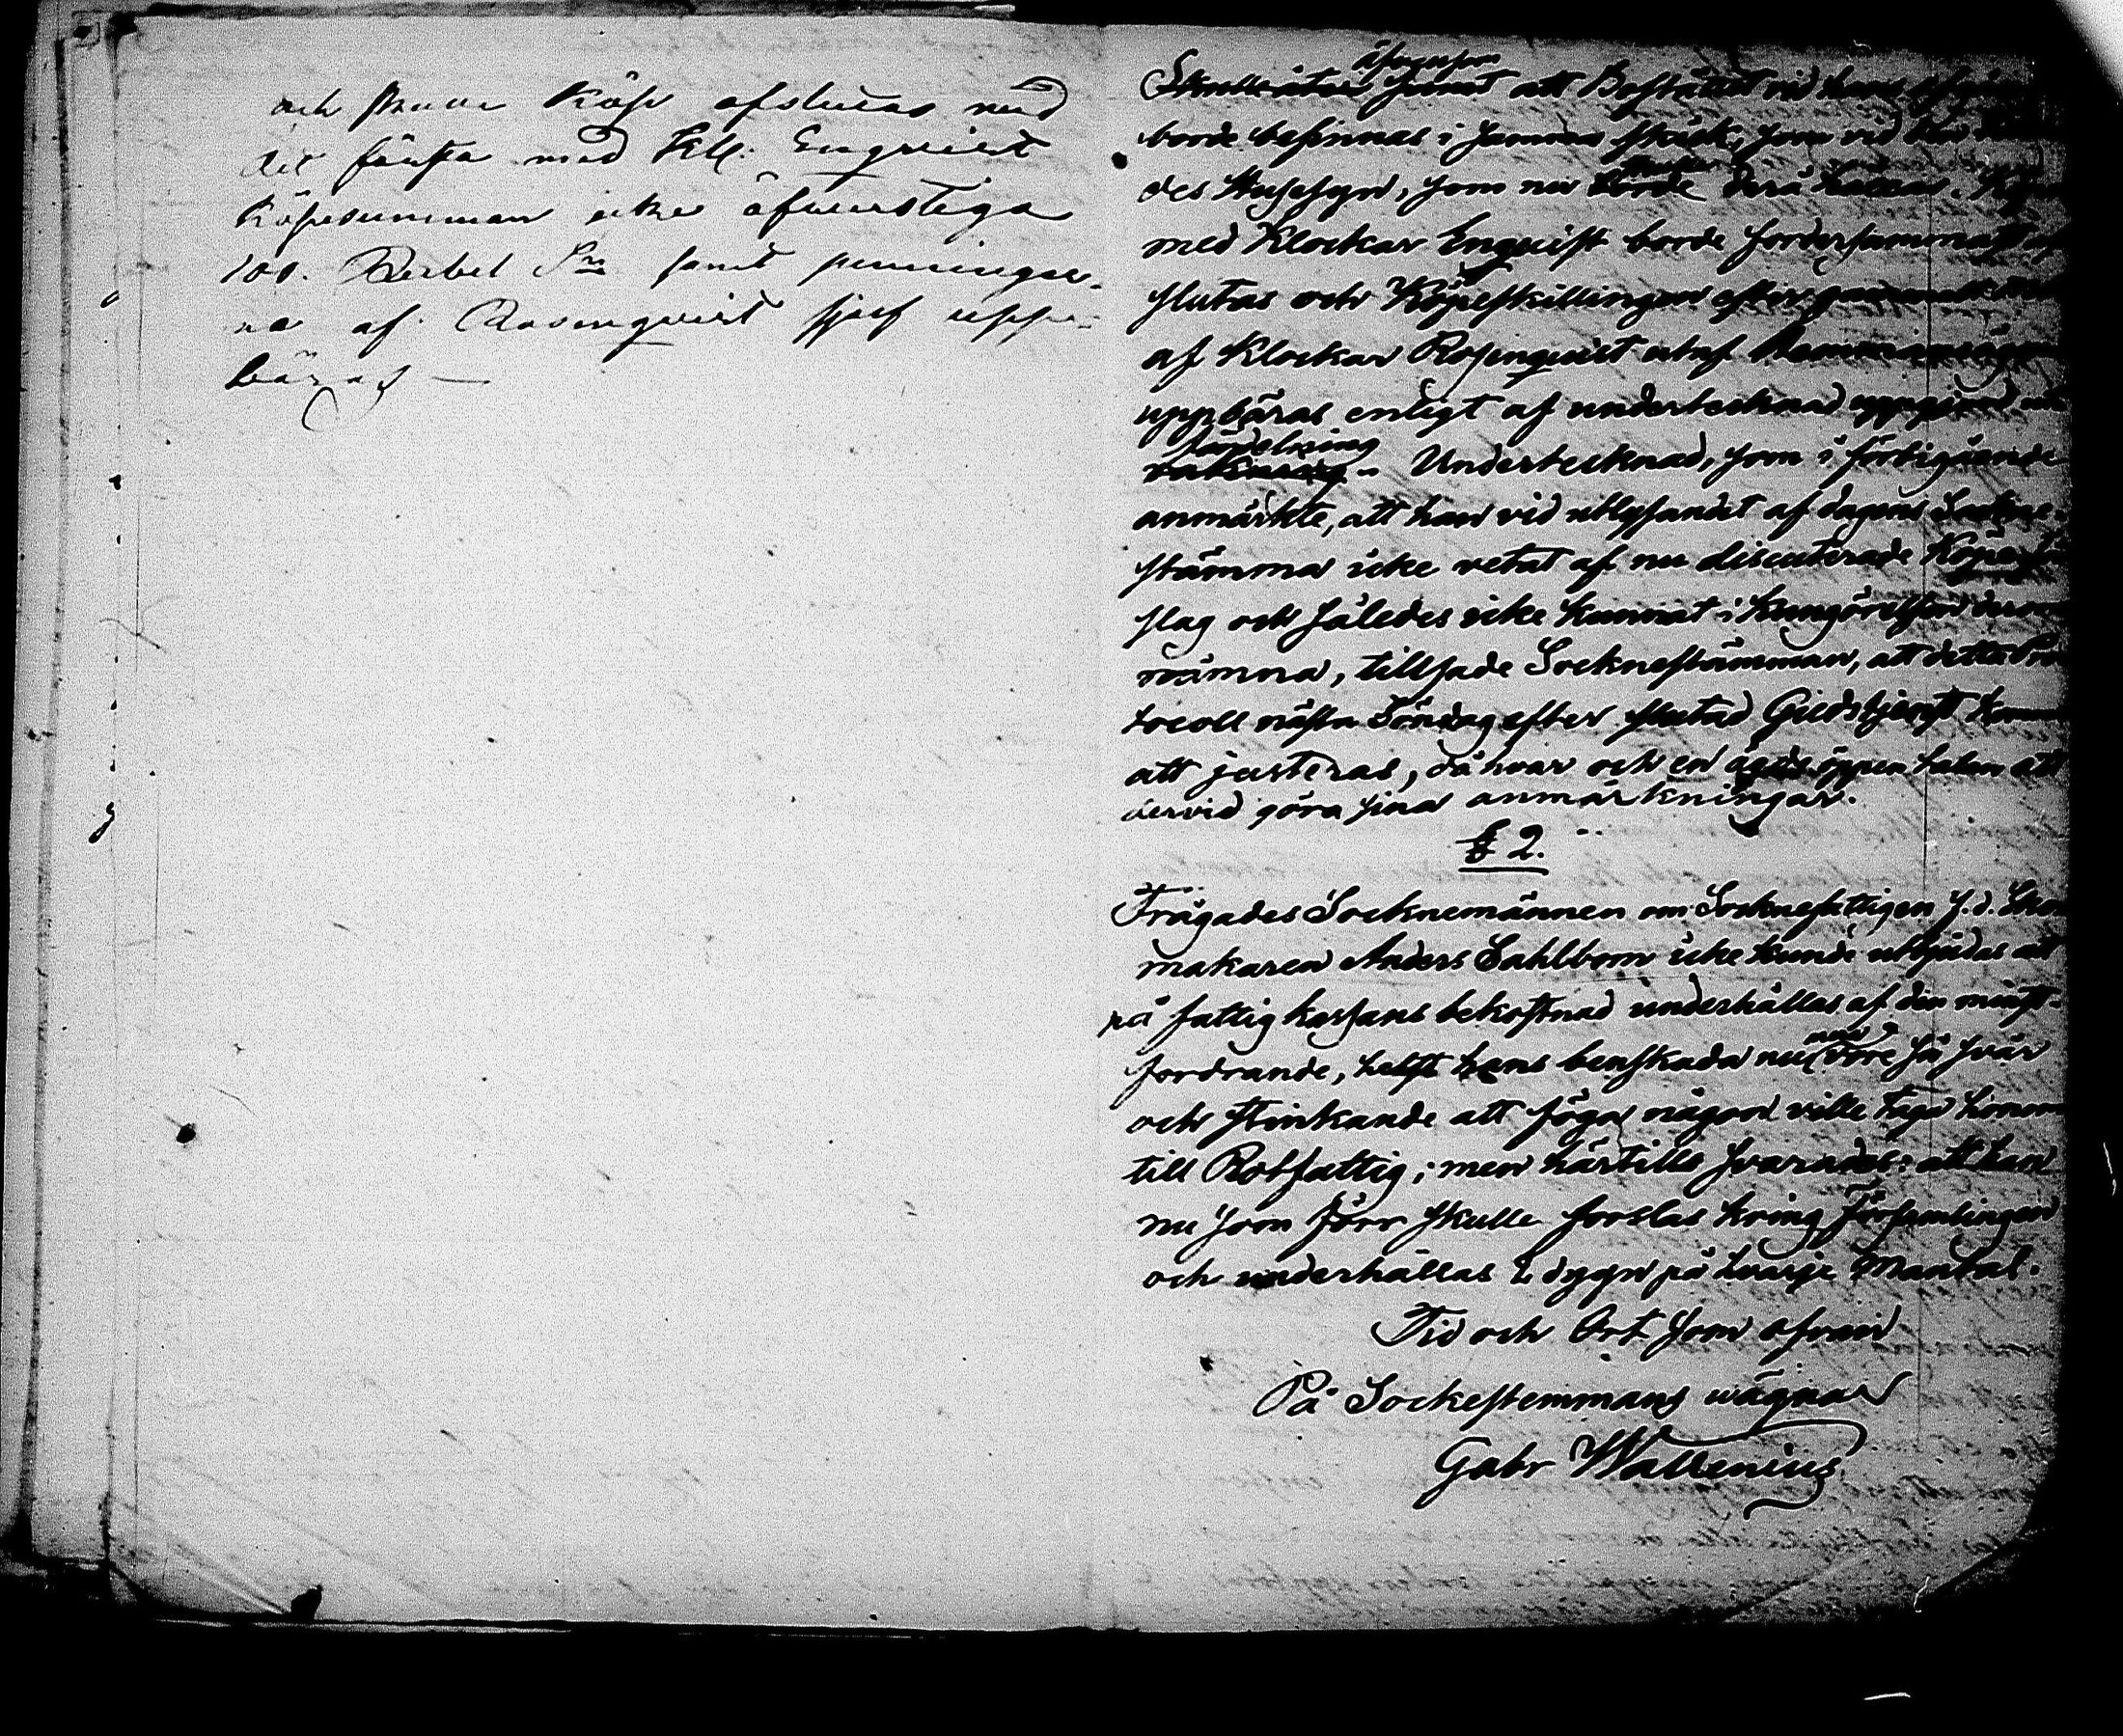 och skulle Köp afslutas med
det första med Kl. Enqvist
Köpesumman icke öfverstiga
100. Rubel Sr samt penningar-
na af Rosenqvist sjelf upp-
bäras —
äfvensom
samt att Bostället vid hans
borde befinnas i samma skick, som vid
des Husesyn, som nu borde
med Klockar Enqvist borde fordersammast af
slutas och Köpeskillingen efter
af Klockar Rosenqvist
uppbäras enligt af undertecknad uppgifven
fördelning
Undertecknad, som i förbigående
anmärkte, att han vid utlysandet af dagens Sockne-
stämma icke vetat af nu discuterade Köpe
slag och således icke kunnat i kungörelsen derom
nämna, tillsade Socknestämman, att detta Pro
tocoll nästa Söndag efter slutad Gudstjenst kommer
att justeras, då hvar och en ägde öppen talan att
dervid göra sina anmärkningar.
§ 2.
Frågades Socknemännen om Socknefattigen f.d. Sko
makaren Anders Sahlbom icke kunde utbjudas att
på fattig kassans bekostnad underhållas af den minst-
fordrande, helst hans benskada nu vore så svår
och stinkande att föga någon ville taga honom
till Rotfattig; men härtills svarades: att han
nu som förr skulle forslas kring Församlingen
och underhållas 2 dygn på hvarje Mantal.
Tid och Ort som ofvan
På Sockestemmans vägnar
Gabr Wallenius